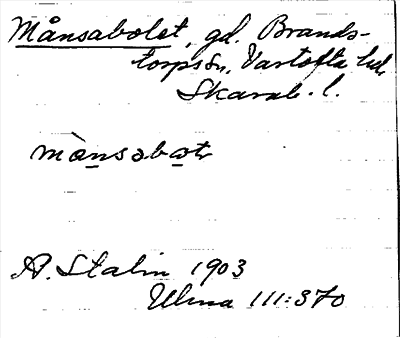 Månsabolet, gd. Brands-
torps sn, Vartofta hd.
Skarab. l.
mànsabot
A. Stalin 1903
Ulma 111:370